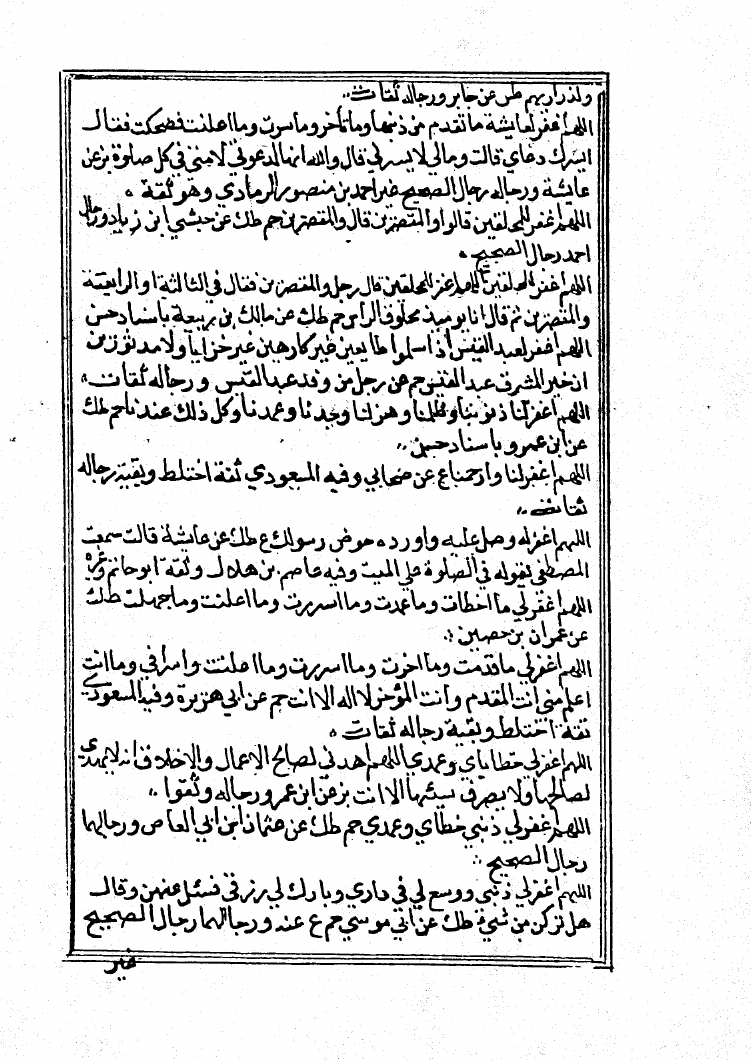 ولذراريهم طس عن جابر ورجاله ثقات
اللهم اغفر لعايشة ما تقدم من ذنبها وما تأخر وما اسرت وما اعلنت فضحكت فقال
ايسرك دعاي قالت ومالي لا يسرني قال والله انها لدعوتي لامتي في كل صلوة بز عن
عايشة ورجاله رجال الصحيح غير احمد بن منصور الرمادي وهو ثقة
اللهم اغفر للمحلقين قالوا والمقصرين قال والمقصرين حم طك عن حبشي ابن زياد ورجال
احمد رجال الصحيح
اللهم اغفر للمحلقين اللهم اغفر للمحلقين قال رجل والمقصرين فقال في الثالثة او الرابعة
والمقصرين ثم قال انا يوميذ محلوق الراس حم طك عن مالك بن ربيعة باسناد حسن
اللهم اغفر لعبد القيس اذ اسلموا طايعين غير كارهين غير خزايا ولا موتورين
ان خير المشرق عبد القيس حم عن رجل من وفد عبد القيس ورجاله ثقات
اللهم اغفر لنا ذنوبنا وظلمنا وهزلنا وجدنا وعمدنا وكل ذلك عندنا حم طك
عن ابن عمرو باسناد حسن
اللهم اغفر لنا وارحمنا ع عن صحابي وفيه المسعودي ثقة اختلط وبقية رجاله
ثقات
اللهم اغفر له وصل عليه واورده حوض رسولك ع طك عن عايشة قالت سمعت
المصطفى يقوله في الصلوة على الميت وفيه عاصم بن هلال وثقه ابو حاتم وغيره
اللهم اغفر لي ما اخطات وما عمدت وما اسررت وما اعلنت وما جهلت طك
عن عمران بن حصين
اللهم اغفر لي ما قدمت وما اخرت وما اسررت وما اعلنت واسرافي وما انت
اعلم مني انت المقدم وانت المؤخر لا اله الا انت حم عن ابي هريرة وفيه المسعودي
ثقة اختلط وبقية رجاله ثقات
اللهم اغفر لي خطاياي وعمدي اللهم اهدني لصالح الاعمال والاخلاق انه لا يهدي
لصالحها ولا يصرف سيئها الا انت بز عن ابن عمر ورجاله وثقوا
اللهم اغفر لي ذنبي خطاي وعمدي حم طك عن عثمان ابن ابي العاص ورجالهما
رجال الصحيح
اللهم اغفر لي ذنبي ووسع لي في داري وبارك لي رزقي فسئل عنهن وقال
هل تركن من شيء طك عن ابي موسي حم ع عنه ورجالهما رجال الصحيح
غير